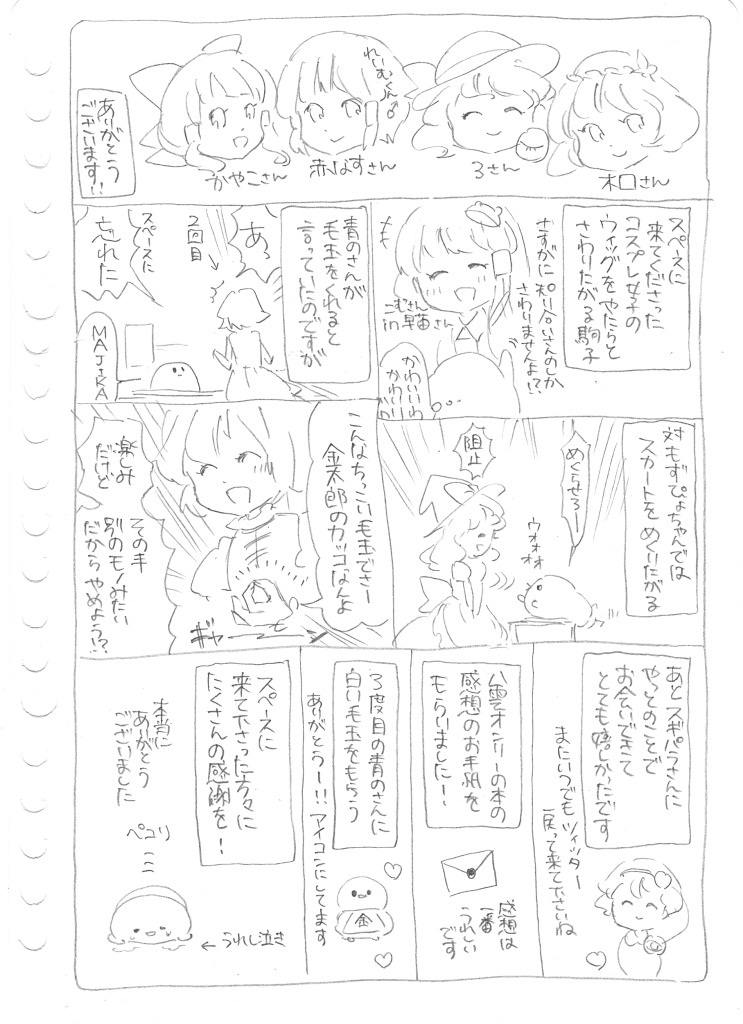 木口さん
ろさん
れいむくん♂
赤なすさん
かやこさん
ありがとう
ございます!!
スペースに
来てくださった
コスプレ女子の
ウィッグをやたらと
さわりたがる駒子
さすがに知り合いさんのしか
さわりませんよ!?
こむさん
in早苗さん
も
かわいいわ
かわいいわ
青のさんが
毛玉をくれると
言っていたのですが
あっ
2回目
スペースに
忘れた
MAJIKA
対もずぴょちゃんでは
スカートをめくりたがる
めくらせろー
ウオォォォ
阻止
こんなちっこい毛玉でさー
金太郎のカッコなんよ
ギャーーーー
楽しみ
だけど
その手
別のモノみたい
だからやめよう!?
あとスギパラさんに
やっとのことで
お会いできて
とても嬉しかったです
またいつでもツイッター
戻って来て下さいね
八雲オンリーの本の
感想のお手紙を
もらいましたー!
感想は
一番
うれしい
です
3度目の青のさんに
白い毛玉をもらう
ありがとうー!!アイコンにしてます
金
スペースに
来て下さった方々に
たくさんの感謝を!
本当に
ありがとう
ございました
ペコリ
←うれし泣き